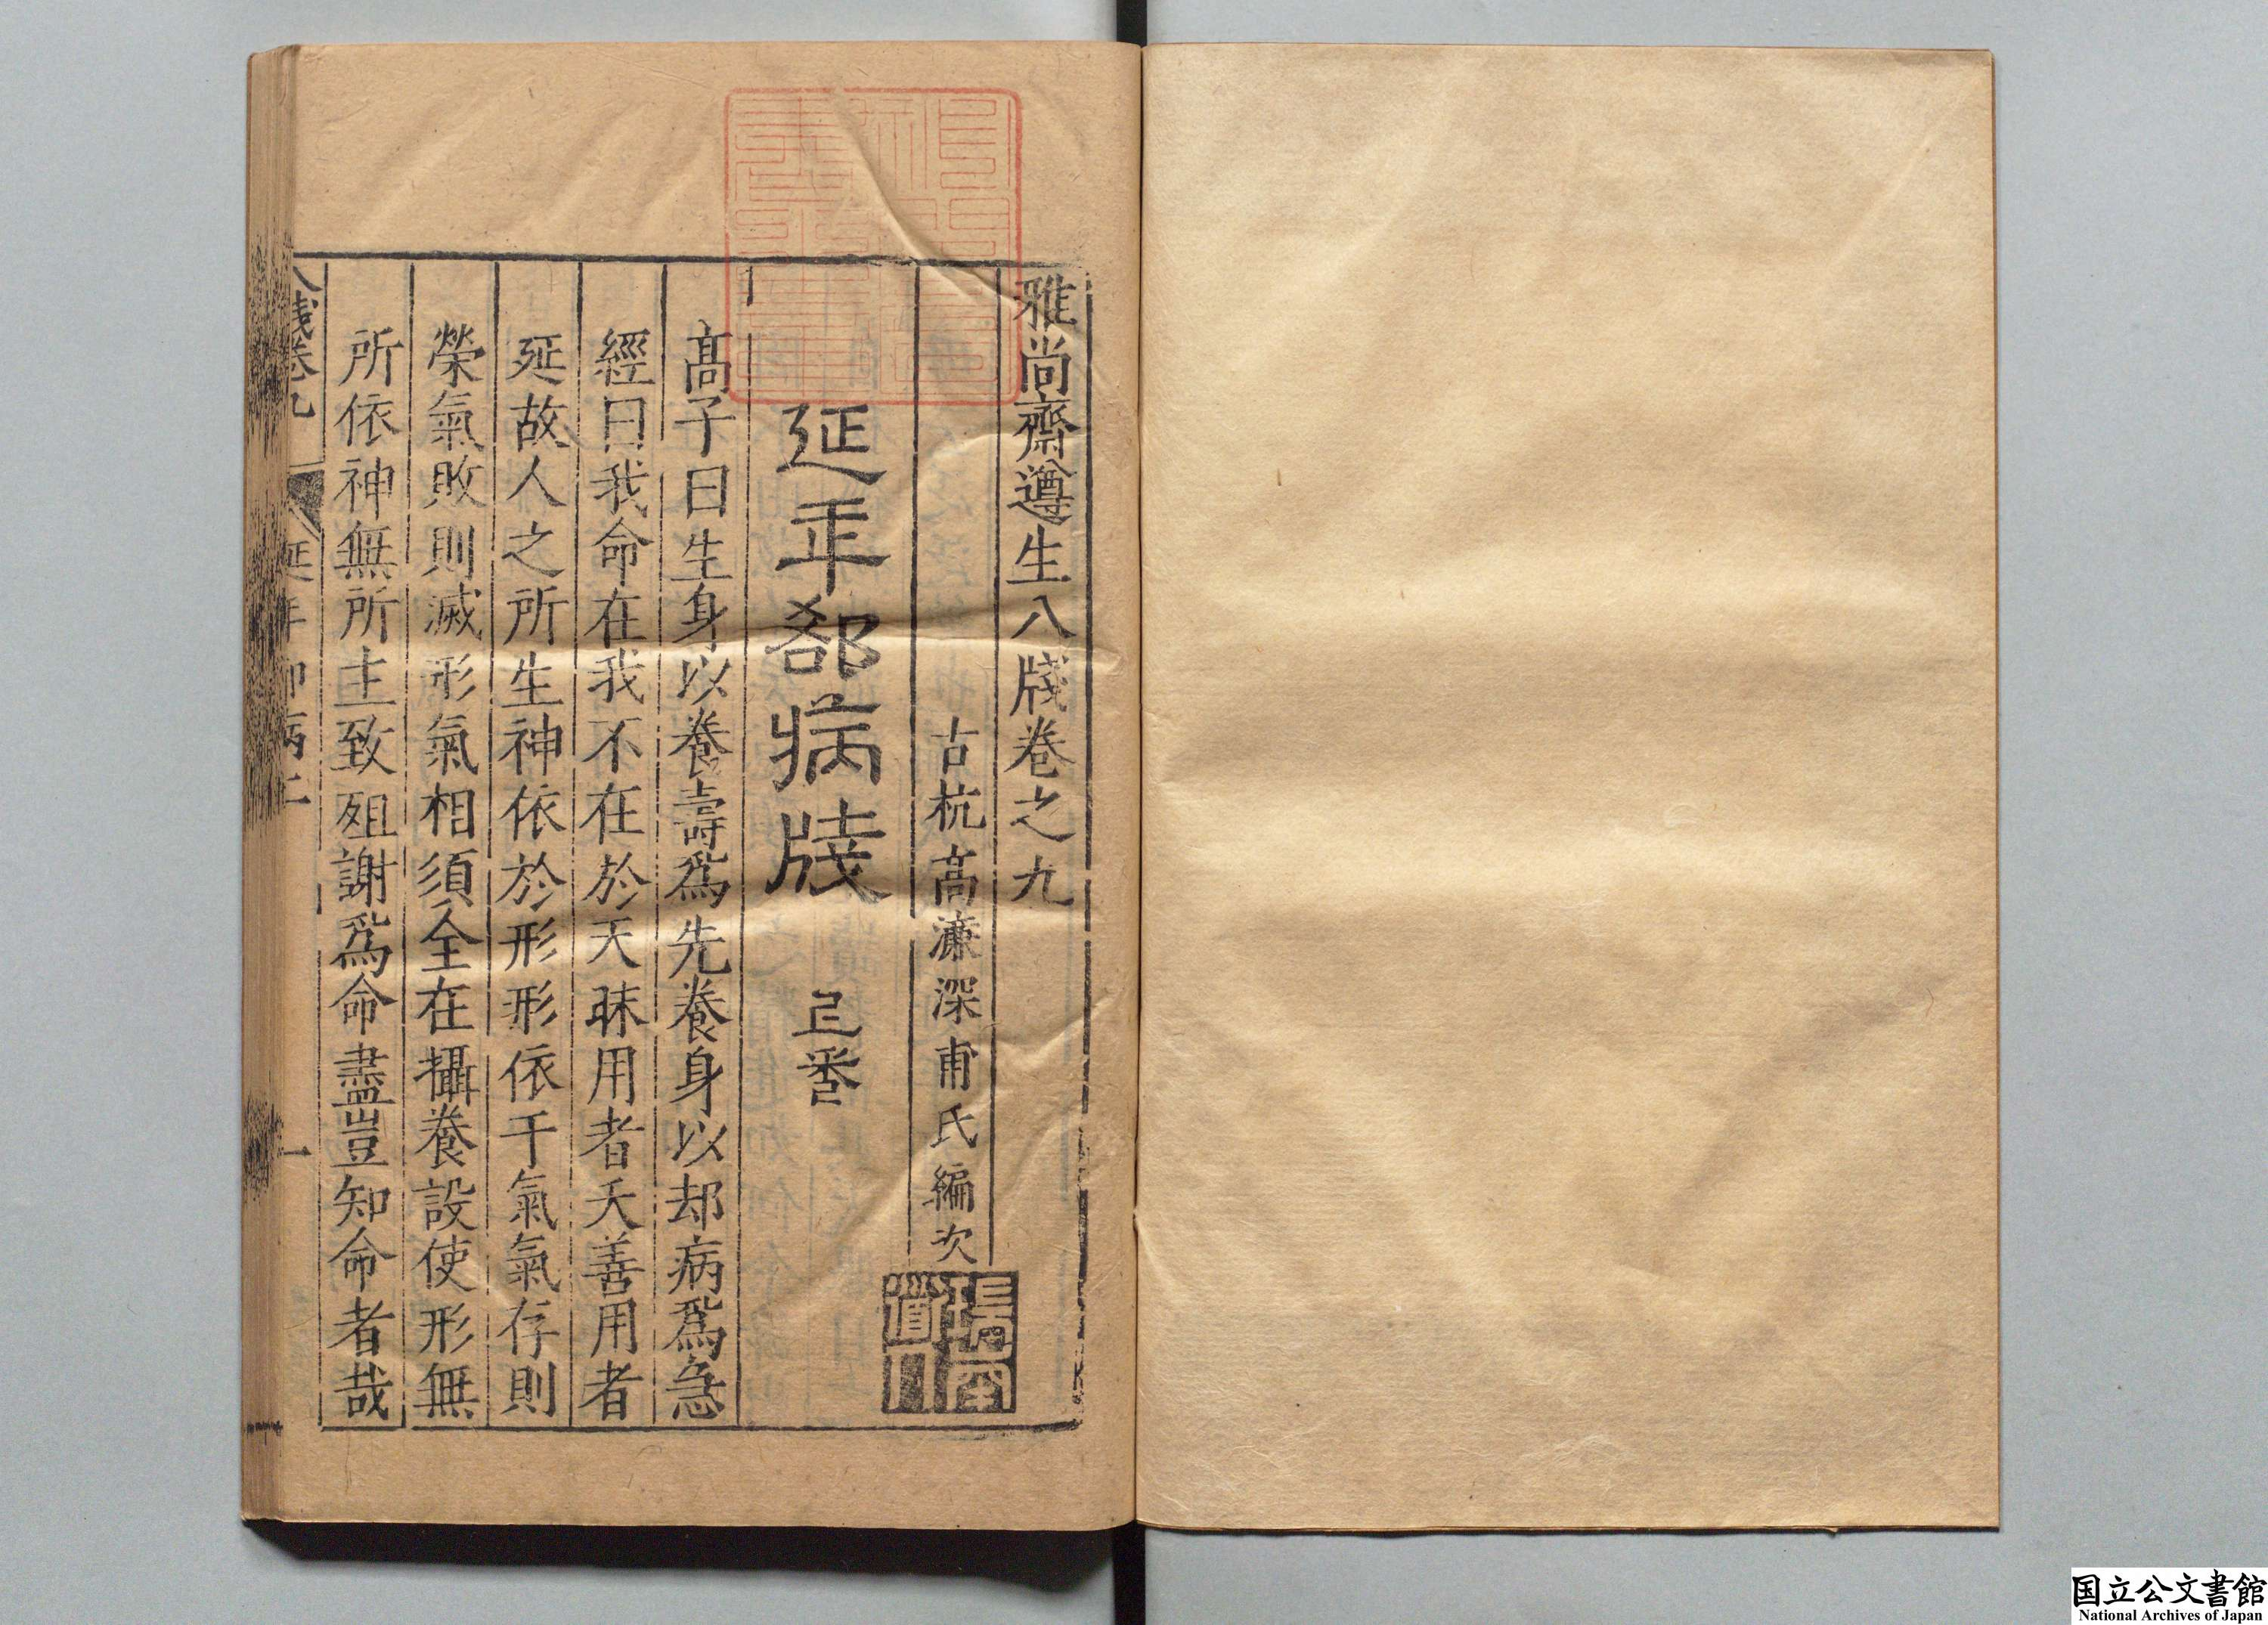 雅尚齋遵生八牋卷之九
古杭高濂深甫氏編次
延年卻病牋 上卷
高子曰生身以養壽爲先養身以却病爲急
經曰我命在我不在於天昧用者夭善用者
延故人之所生神依於形形依于氣氣存則
榮氣敗則滅形氣相須全在攝養設使形無
所依神無所主致殂謝爲命盡豈知命者哉
八牋卷九 延年卻病上 一
国立公文書館
National Archives of Japan